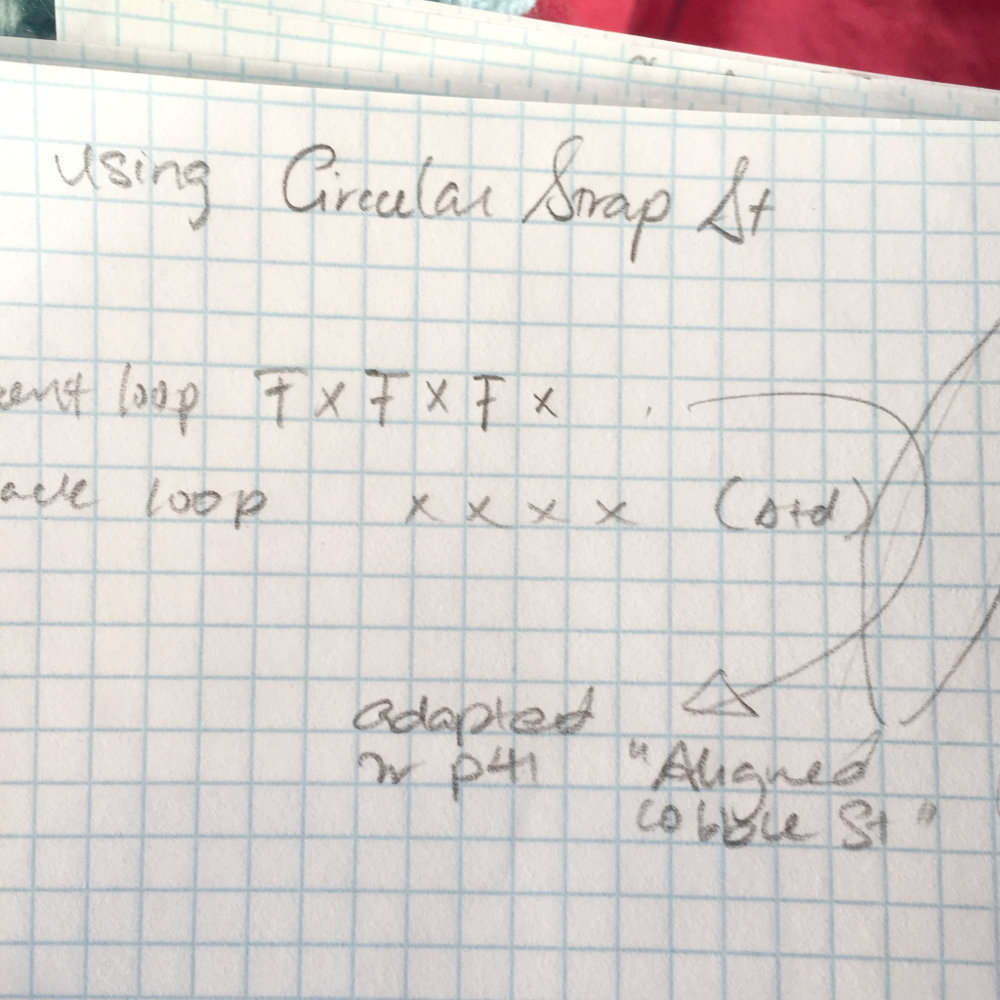 using Circular Snap St
loop F x F x F x
loop x x x x (std)
adapted
p41 "Aligned
cobble St"